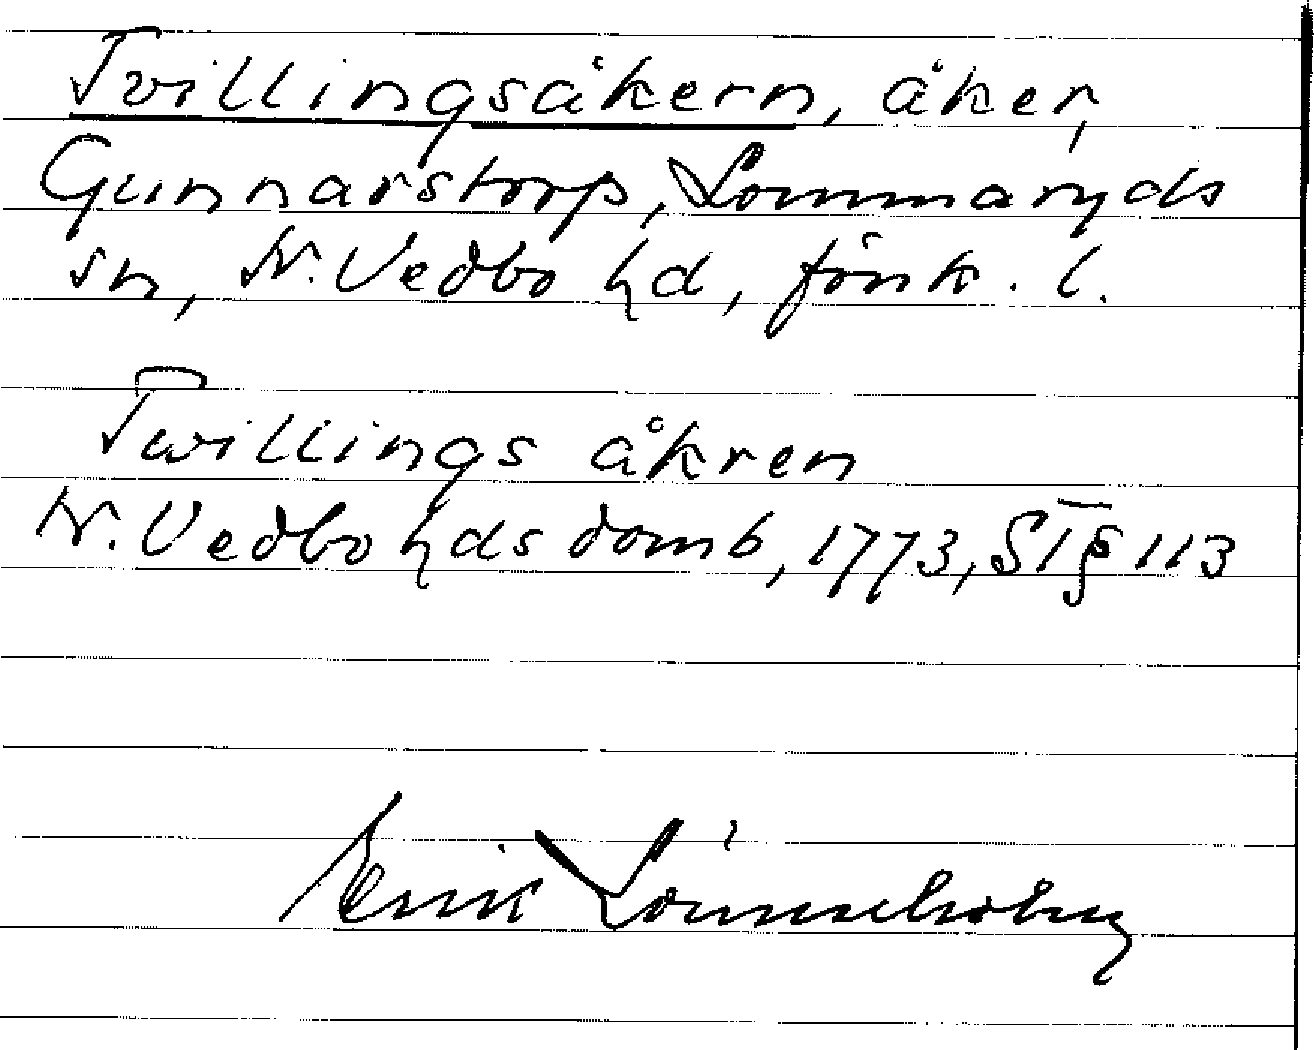 Tvillingsåkern, åker,
Gunnarstorp, Lommaryds
sn, N. Vedbo hd, jönk. l.
Twillings åkren
N. Vedbo hds domb, 1773, ST § 113
Erik Lönnerholm